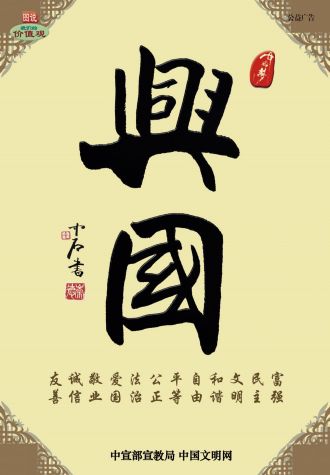 图说
我们的
价值观
公益广告
中国梦
興
國
中石書
富强 民主 文明 和谐 自由 平等 公正 法治 爱国 敬业 诚信 友善
中宣部宣教局 中国文明网